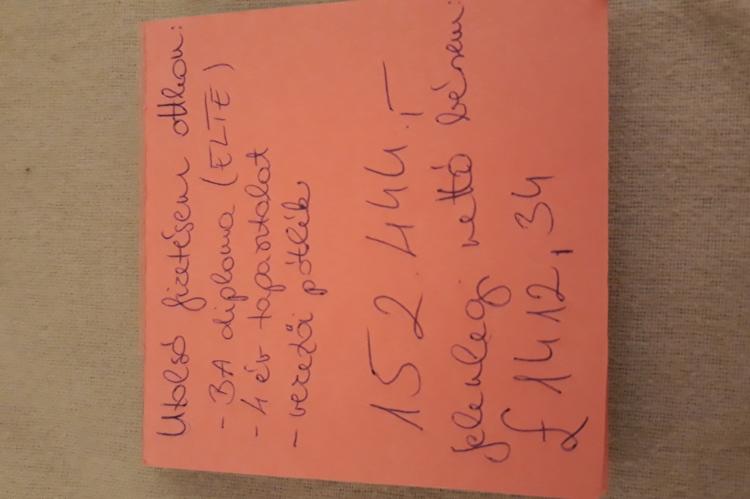 Utolsó fizetésem otthon:
- BA diploma (ELTE)
- 4 év tapasztalat
- vezetői pótlék
152 444.-
jelenleg nettó bérem:
£ 1412,34